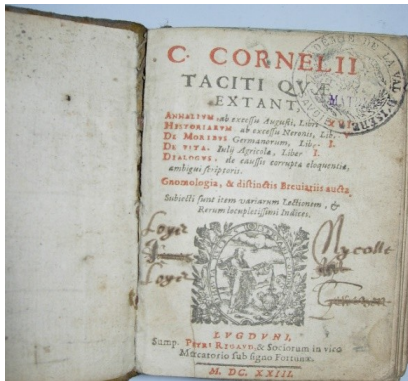 C. CORNELII
TACITI QVÆ
EXTANT.
ANNALIVM ab excessu Augusti, Libri XVI.
HISTORIARVM ab excessu Neronis, Lib. V.
DE MORIBVS Germanorum, Lib. I.
DE VITA Iulij Agricolæ, Liber I.
DIALOGVS, de caussis corruptæ eloquentiæ,
ambigui scriptoris.
Gnomologia, & distinctis Breviariis aucta.
Subiecti sunt item variarum Lectionum, &
Rerum locupletissimi Indices.
Loyer
Loyer
Nycolle
LVGDVNI,
Sump. PETRI RIGAVD, & Sociorum in vico
Mercatorio sub signo Fortunæ.
M. DC. XXIII.